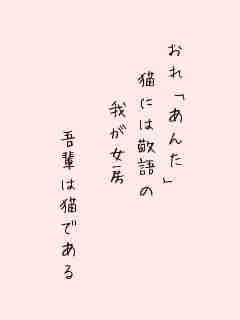 おれ「あんた」
猫には敬語の
我が女房
吾輩は猫である